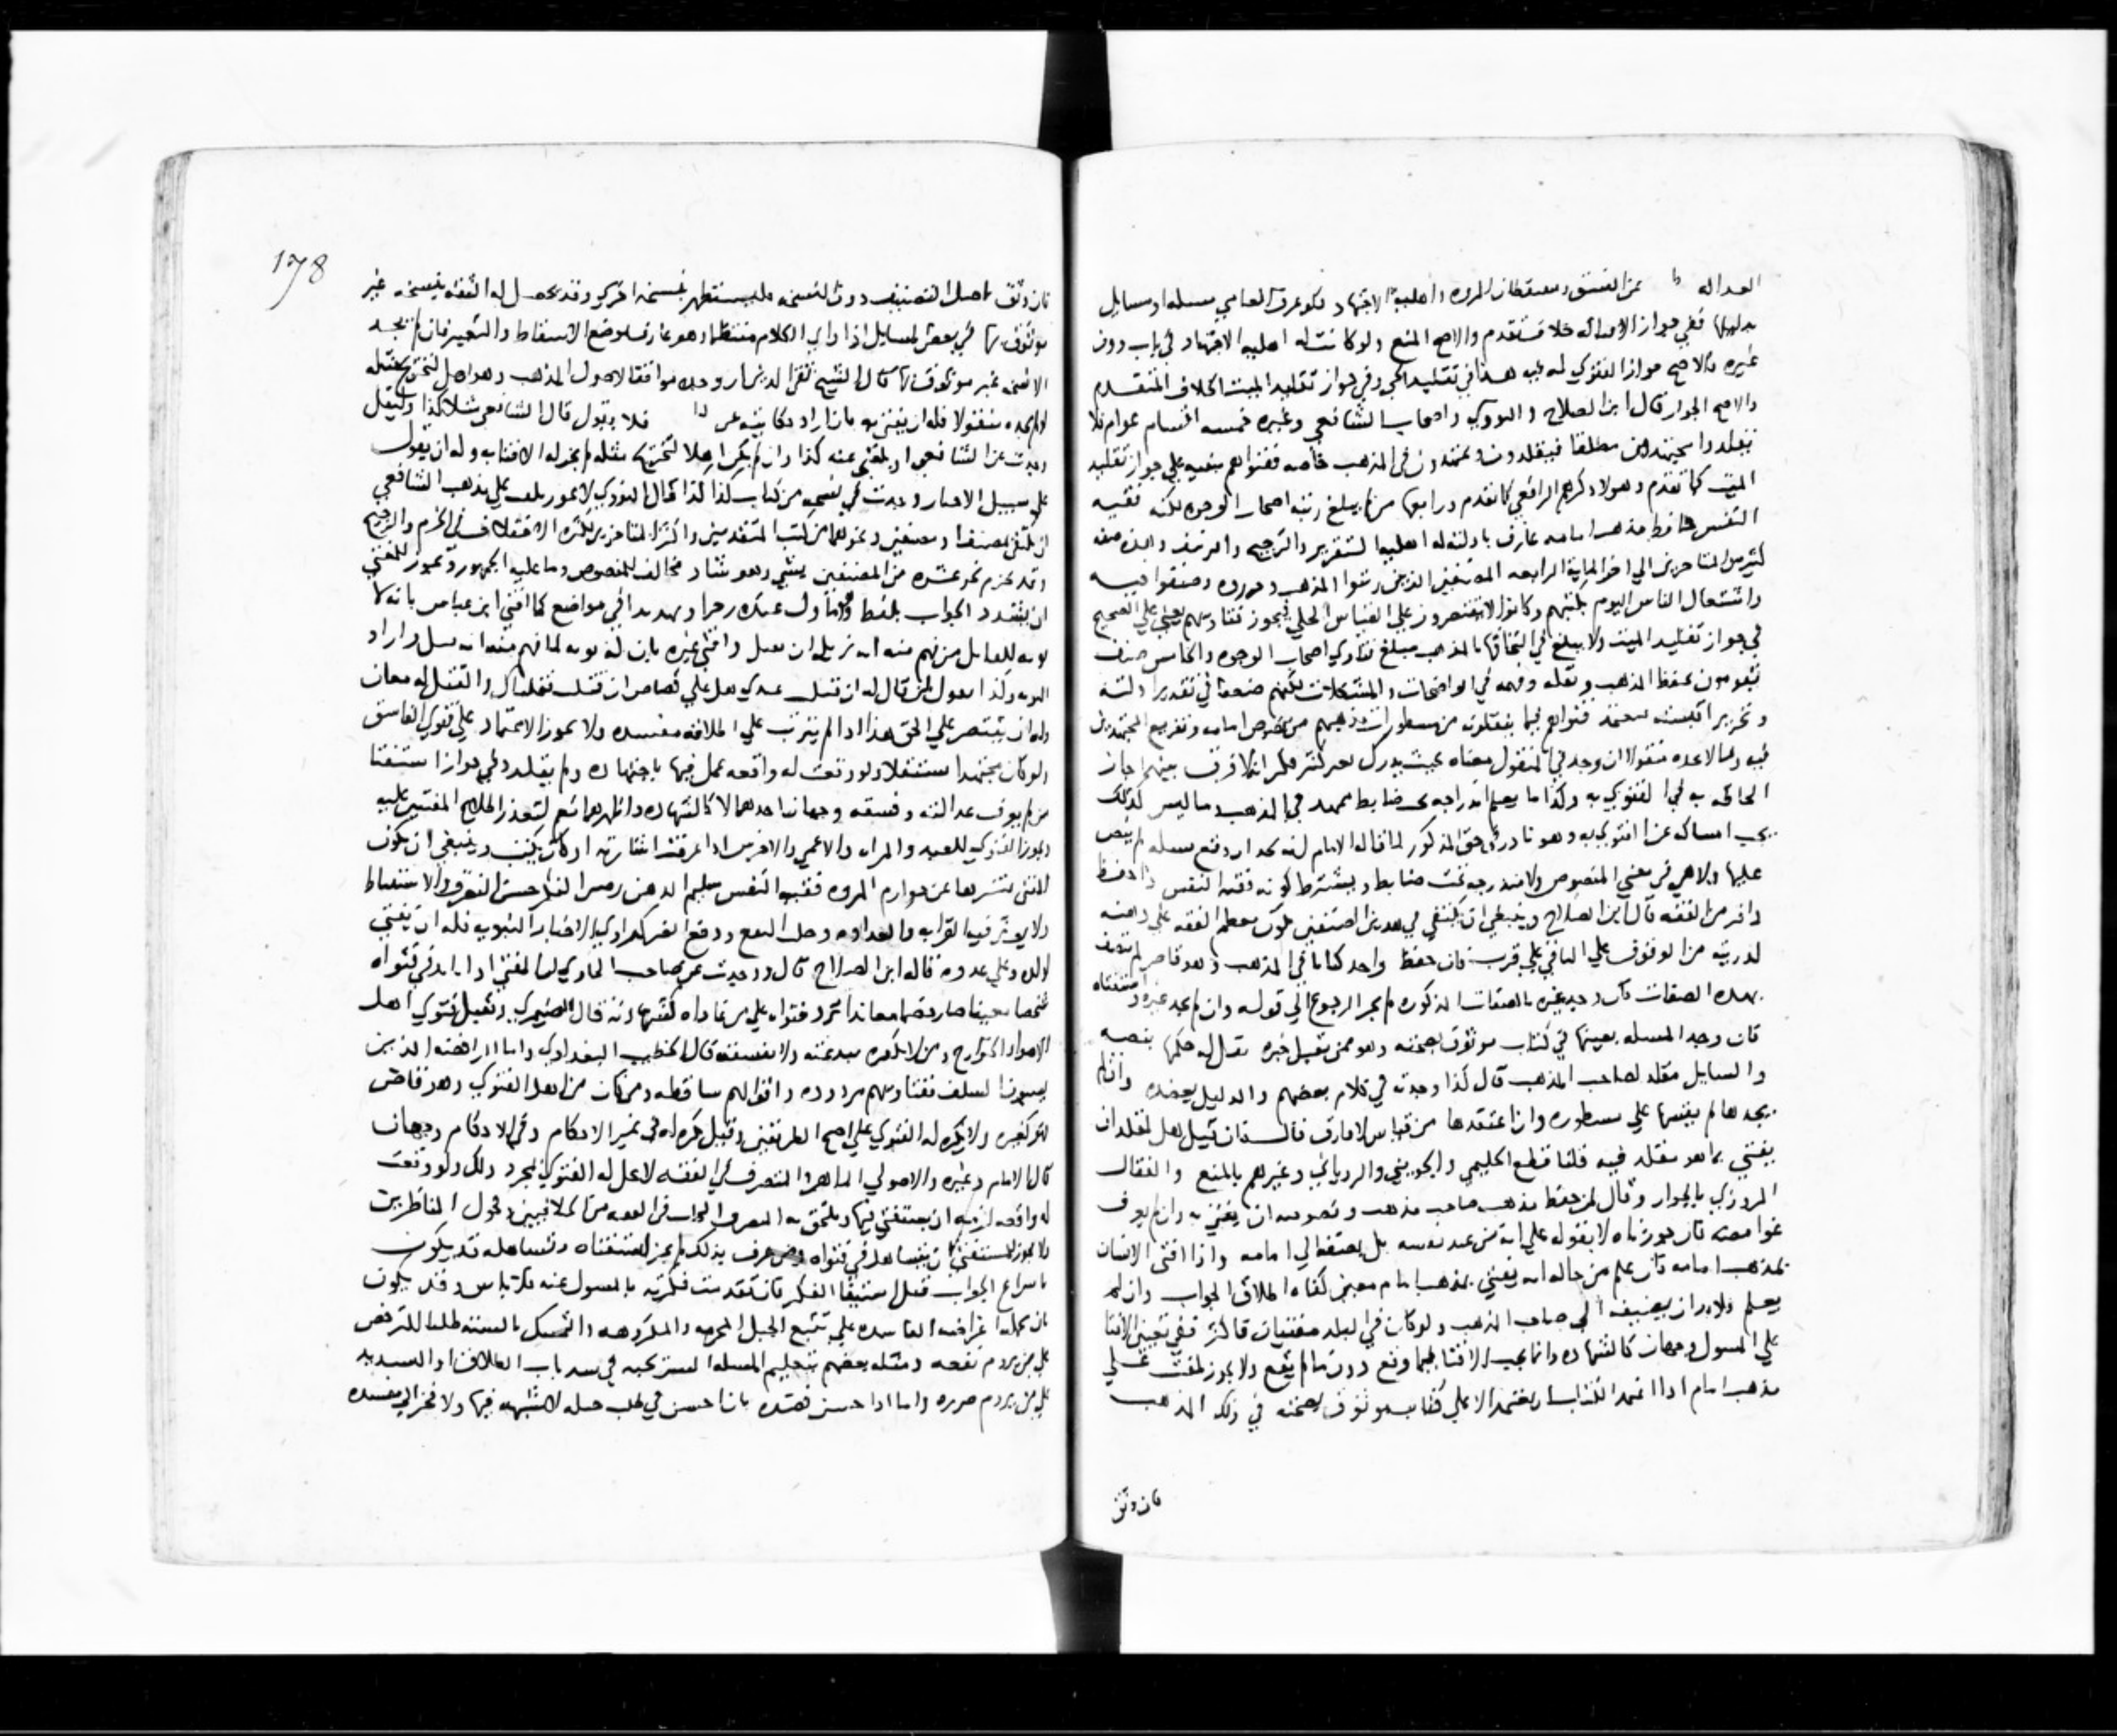 العداله عن الفسق ومسقطات المروه واهليه الاجتهاد فلو عرف العامي مسله او مسايل
بدليلها ففي جواز الافتا له خلاف تقدم والاصح المنع ولو كانت له اهليه الاجتهاد في باب دون
غيره فالاصح جواز الفتوي له فيه هذا في تقليد الحي وفي جواز تقليد الميت الخلاف المتقدم
والاصح الجواز قال ابن الصلاح والنووي واصحاب الشافعي وغيره خمسه اقسام عوام فلا
تقليد واجتهدين مطلقا فيقلدون ومجتهدون في المذهب خاصه ففتواهم مبنيه علي جواز تقليد
الميت كما تقدم وهولا ذكرهم الرافعي كما تقدم ورابعها من لم يبلغ رتبه اصحاب الوجوه لكنه فقيه
النفس حافظ مذهب امامه عارف بادلته له اهليه التقرير والترجيح والتزييف وهذه صفه
كثير من المتاخرين الي اخر المايه الرابعه المصنفين الذين رتبوا المذهب وحرروه وصنفوا فيه
واشتغال الناس اليوم بكتبهم وكانوا لا يقتصرون علي القياس الجلي فيجوز فتاويهم يعني علي الصحيح
في جواز تقليد الميت ولا يبلغ في التحاقها بالمذهب مبلغ فتاوي اصحاب الوجوه والخامس صنف
يقومون بحفظ المذهب ونقله وفهمه في الواضحات والمشكلات لكنهم ضعفا في تقدير ادلته
وتحرير اقيسته يعتمد فتواهم فيما ينقلونه من مسطورات مذهبهم من نصوص امامه وتفريع المجتهدين
فيه وما لا يجده منقولا ان وجد في المنقول معناه بحيث يدرك بغير كثير فكر انه لا فرق بينهما جاز
الحاقه به في الفتوي به وكذا ما يعلم اندراجه تحت ضابط ممهد في المذهب وما ليس كذلك
يجب امساكه عن الفتوي به وهو نادر في حق المذكور لما قاله الامام انه يبعد ان يقع مسله لم ينص
عليها ولا هي في معني المنصوص ولا مندرجه تحت ضابط ويشترط كونه فقيه النفس ذا حفظ
وافر من الفقه قال ابن الصلاح وينبغي ان يكتفي في هذين الصنفين بكون معظم الفقه علي ذهنه
لدربته من الوقوف علي الباقي علي قرب فان حفظ واحد كتابا في المذهب وهو قاصر لم يتصف
بهذه الصفات فان وجد غيره بالصفات المذكوره لم يجز الرجوع الي قوله وان لم يجد غيره واستفتاه
فان وجد المسله بعينها في كتاب موثوق بصحته وهو ممن يقبل خبره نقل له حكمها بنصه
والسايل مقلد لصاحب المذهب قال كذا وجدته في كلام بعضهم والدليل يعضده وان لم
يجدها لم يقسها علي مسطوره وان اعتقدها من قياس لا فارق فان قيل هل لمقلد ان
يفتي بما هو مقلد فيه قلنا قطع الحليمي والجويني والروياني وغيرهم بالمنع والقفال
المروزي بالجواز وقال لمن حفظ مذهب صاحب مذهب ونصوصه ان يفتي به وان لم يعرف
غوامضه فان جوزناه لا يقوله علي انه من عند نفسه بل يضيفه الي امامه واذا افتي الانسان
بمذهب امامه فان علم من حاله انه يفتي بمذهب امام معين كفاه اطلاق الجواب وان لم
يعلم فلا بد ان يضيفه الي صاحب المذهب ولو كان في البلد مفتيان فاكثر ففي تعيين الافتا
علي المسول وجهان كالشهاده وانما يجب الافتا فيما وقع دون ما لم يقع ولا يجوز لمفت علي
مذهب امام اذا اعتمد الكتاب ان يعتمد الا علي كتاب موثوق بصحته في ذلك المذهب
فان وثق
178
فان وثق باصل التصنيف دون النسخه فليستظهر بنسخه اخري وقد تحصل له الثقه بنسخه غير
موثوق بها في بعض المسايل اذا راي الكلام منتظما وهو عارف لموضع الاسقاط والتغيير فان لم يجد
الا نسخه غير موثوق بها قال الشيخ تقي الدين ان وجده موافقا لاصول المذهب وهو اهل لتخريج مثله
لو لم يجده منقولا فله ان يفتي به فان اراد حكايته عن فلا يقول قال الشافعي مثلا كذا وليقل
وجدت عن الشافعي او بلغني عنه كذا وان لم يكن اهلا لتخريج مثله لم يجز له الافتا به وله ان يقول
علي سبيل الاخبار وجدت في نسخه من كتاب كذا كذا قال النووي لا يجوز لمفت علي مذهب الشافعي
ان يكتفي بمصنف او مصنفين ونحوهما من كتب المتقدمين واكثر المتاخرين لكثره الاختلاف في الجزم والترجيح
وقد يجزم نحو عشره من المصنفين بشي وهو شاذ مخالف للمنصوص وما عليه الجمهور ويجوز للمفتي
ان يشدد في الجواب بلفظ متاول عنده زجرا وتهديدا في مواضع كما افتي ابن عباس بانه لا
توبه للقاتل من فهم منه انه يريد ان يقتل وافتي غيره بان له توبه لما فهم منه انه قتل واراد
التوبه وكذا يقول لمن قال له ان قتلت عبدي هل علي قصاص ان قتلت قتلناك والقتل له معان
وله ان يقتصر علي الحق هذا اذا لم يترتب علي اطلاقه مفسده ولا يجوز الاعتماد علي فتوي الفاسق
ولو كان مجتهدا مستقلا ولو وقعت له واقعه عمل فيها باجتهاده ولم يقلد وفي جواز استفتا
من لم يعرف عدالته وفسقه وجهان احدهما لا كالشهاده واظهرهما نعم لتعذر اطلاع المفتيين عليه
ويجوز الفتوي للعبد والمراه والاعمي والاخرس اذا عرفت اشارته او كان يكتب وينبغي ان يكون
المفتي متنزها عن خوارم المروه فقيه النفس سليم الذهن رصين الفكر حسن التصرف والاستنباط
ولا يوثر فيه القرابه والعداوه وجلب النفع ودفع الضر كالراوي للاخبار النبويه فله ان يفتي
لولده وعلي عدوه قاله ابن الصلاح قال ووجدت عن صاحب الحاوي ان المفتي اذا نابذ في فتواه
شخصا معينا صار خصما معاندا ترد فتواه علي من عاداه كشهادته قال الصيمري وتقبل فتوي اهل
الاهوا والخوارج ومن لا نكفره ببدعته ولا نفسقه قال الخطيب البغدادي واما الرافضه الذين
يسبون السلف ففتاويهم مردوده واقوالهم ساقطه ومن كان من اهل الفتوي وهو قاض
فهو كغيره ولا يكره له الفتوي علي اصح الطريقين وقيل تكره له في غير الاحكام وفي الاحكام وجهان
قال الامام وغيره والاصولي الماهر المتصرف في الفقه لا يحل له الفتوي بمجرد ذلك ولو وقعت
له واقعه لزمه ان يستفتي فيها ويلتحق به المتصرف البحاث في الفقه من الخلافيين وفحول المناظرين
ولا يجوز للمستفتي ان يتساهل في فتواه ومن عرف بذلك لم يجز استفتاه وتساهله قد يكون
باسراع الجواب قبل استيفا الفكر فان تقدمت فكرته بالمسول عنه فلا باس وقد يكون
بان تحمله اغراضه الفاسده علي تتبع الحيل المحرمه والمكروهه والتمسك بالسنه طلبا للترخص
علي من يروم نفعه ومثله بعضهم بتعليم المسله السريجيه في سد باب الطلاق او التشديد
علي من يروم ضرره واما اذا حسن قصده بان احسن في طلب حيله لا شبهه فيها ولا تجر الي مفسده